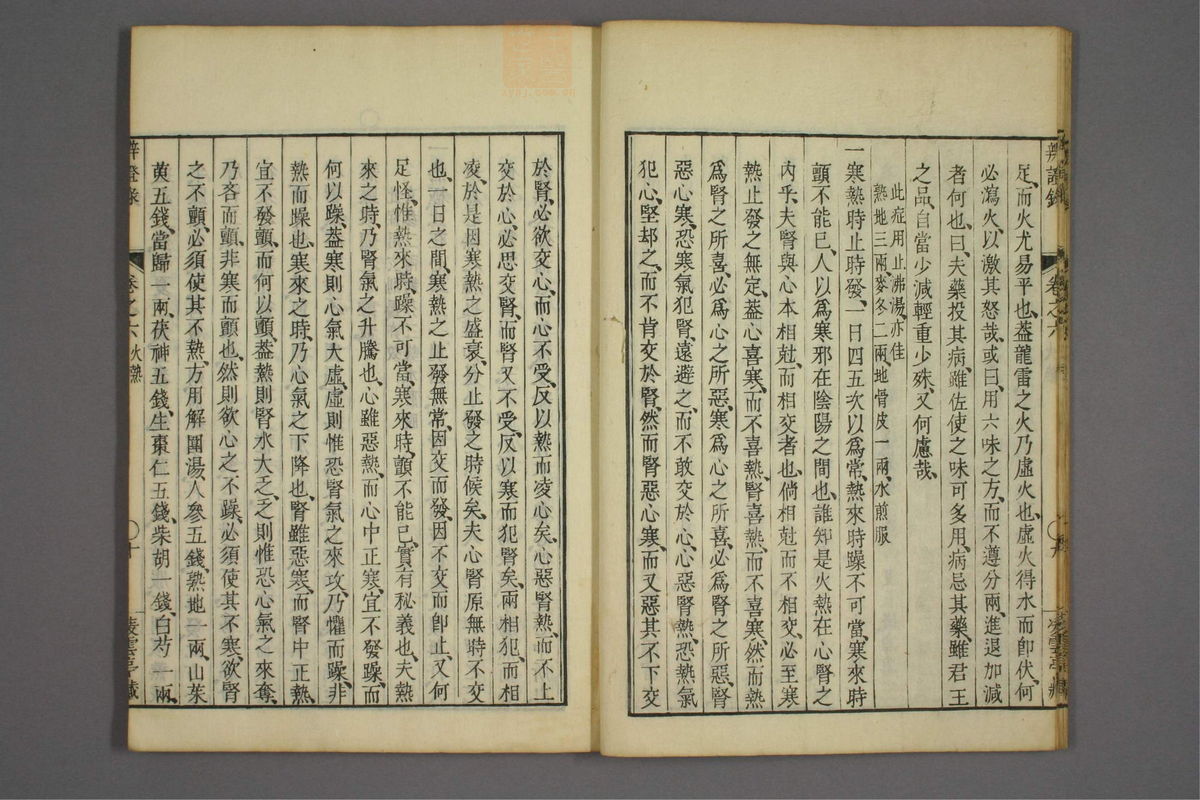 足、而火尤易平也、葢龍雷之火乃虛火也、虛火得水而卽伏、何
必瀉火、以激其怒哉、或曰、用六味之方、而不遵分兩、進退加減
者何也、曰、夫藥投其病、雖佐使之味可多用、病忌其藥、雖君王
之品、自當少減、輕重少殊、又何慮哉、
此症用止沸湯、亦佳
熟地三兩、麥冬二兩、地骨皮一兩、水煎服
一寒熱時止時發、一日四五次以爲常、熱來時躁不可當、寒來時
顫不能已、人以爲寒邪在陰陽之間也、誰知是火熱在心腎之
內乎、夫腎與心本相尅、而相交者也、倘相尅而不相交、必至寒
熱止發之無定、葢心喜寒、而不喜熱、腎喜熱、而不喜寒、然而熱
爲腎之所喜、必爲心之所惡、寒爲心之所喜、必爲腎之所惡、腎
惡心寒、恐寒氣犯腎、遠避之、而不敢交於心、心惡腎熱、恐熱氣
犯心、堅却之、而不肯交於腎、然而腎惡心寒、而又惡其不下交
辨證錄
卷之六
〇九
凌雲亭藏
於腎、必欲交心、而心不受、反以熱而凌心矣、心惡腎熱、而不上
交於心、必思交腎、而腎又不受、反以寒而犯腎矣、兩相犯、而相
凌、於是因寒熱之盛衰、分止發之時候矣、夫心腎原無時不交
也、一日之間、寒熱之止發無常、因交而發、因不交而卽止、又何
足怪、惟熱來時、躁不可當、寒來時、顫不能已、實有秘義也、夫熱
來之時、乃腎氣之升騰也、心雖惡熱、而心中正寒、宜不發躁、而
何以躁、葢寒則心氣大虛、虛則惟恐腎氣之來攻、乃懼而躁、非
熱而躁也、寒來之時、乃心氣之下降也、腎雖惡寒、而腎中正熱、
宜不發顫、而何以顫、葢熱則腎水大乏、乏則惟恐心氣之來奪、
乃吝而顫、非寒而顫也、然則欲心之不躁、必須使其不寒、欲腎
之不顫、必須使其不熱、方用解圍湯、人參五錢、熟地一兩、山茱
萸五錢、當歸一兩、茯神五錢、生棗仁五錢、柴胡一錢、白芍一兩、
辨證錄
卷之六 火熱
〇十
凌雲亭藏